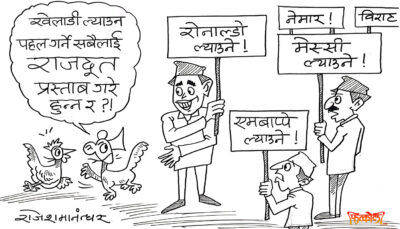 खेलाडी ल्याउन
पहल गर्ने सबैलाई
राजदूत
प्रस्ताब गरे
हुन्न र ?!
रोनाल्डो
ल्याउने !
नेमार !
विराट
मेस्सी
ल्याउने !
एमबाप्पे
ल्याउने !
राजेशमानन्धर